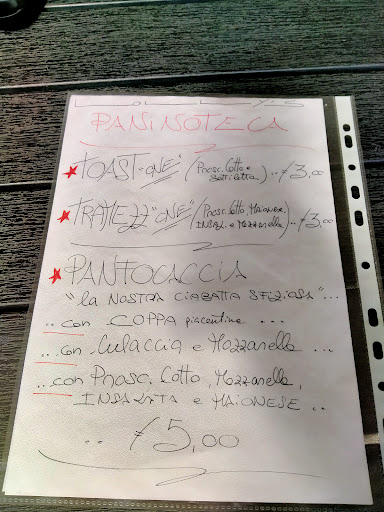 PANINOTECA
TOAST-"ONE" (Prosc. Cotto e
Sottiletta) .. € 3,00
TRAMEZZ"ONE" (Prosc. Cotto, Maionese,
INSAL. e Mozzarella) .. € 3,00
PANFOCACCIA
"la NOSTRA CIABATTA SFIZIOSA" ...
.. con COPPA piacentina ...
... con Culaccia e Mozzarella ...
.. con Prosc. Cotto, Mozzarella,
INSALATA e MAIONESE ..
.. € 5,00